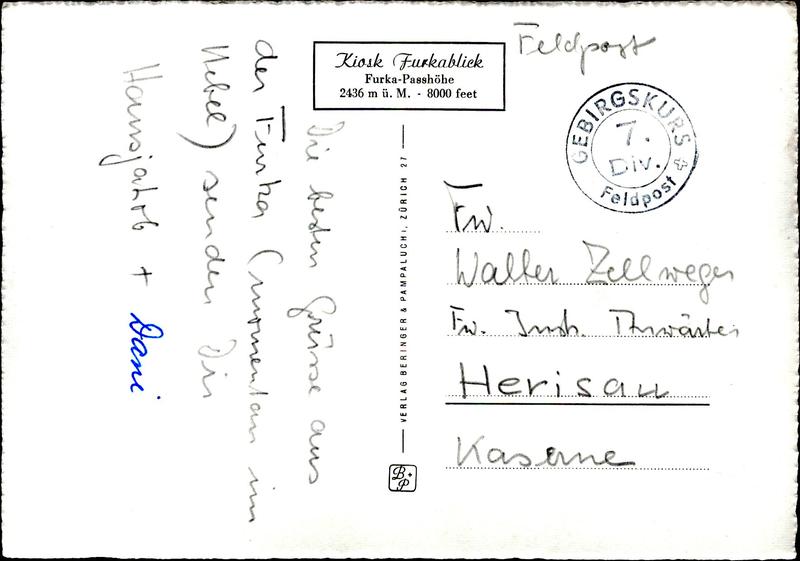 Kiosk Furkablick
Furka-Passhöhe
2436 m ü. M. - 8000 feet
Feldpost
GEBIRGSKURS
7.
Div.
Feldpost
Die besten Grüsse aus
der Furka (momentan im
Nebel) senden Dir
Hansjakob + Dani
VERLAG BERINGER & PAMPALUCHI, ZÜRICH 27
B+P
Fw.
Walter Zellweger
Fw. Instr. Anwärter
Herisau
Kaserne